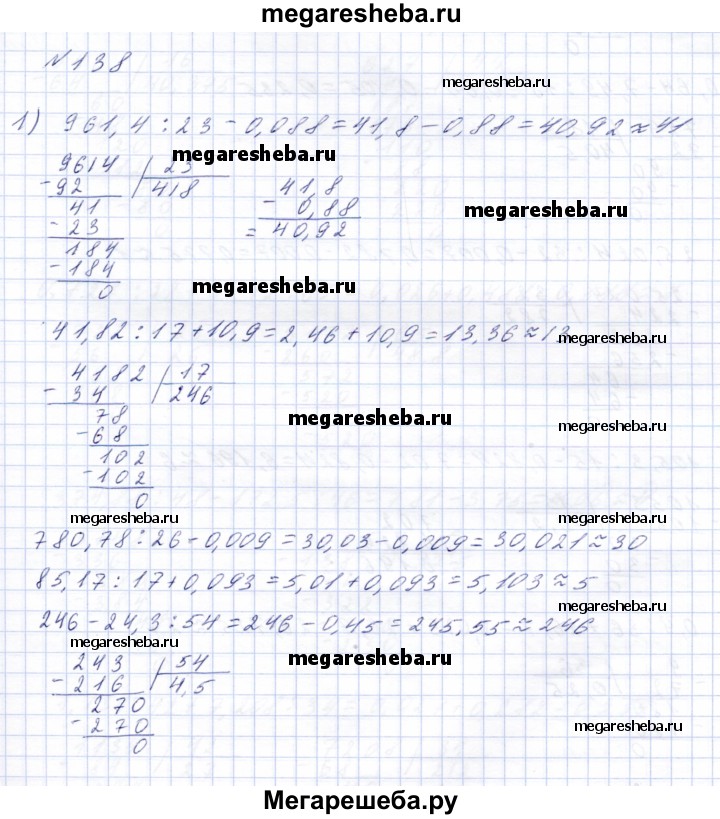 megaresheba.ru
№138
megaresheba.ru
1) 961,4 : 23 - 0,088 = 41,8 - 0,88 = 40,92 ≈ 41
megaresheba.ru
9614 | 23
- 92 418
41
- 23
184
- 184
0
41,8
- 0,88
= 40,92
megaresheba.ru
megaresheba.ru
41,82 : 17 + 10,9 = 2,46 + 10,9 = 13,36 ≈ 13
megaresheba.ru
4182 | 17
- 34 246
78
- 68
102
- 102
0
megaresheba.ru
megaresheba.ru
megaresheba.ru
megaresheba.ru
780,78 : 26 - 0,009 = 30,03 - 0,009 = 30,021 ≈ 30
85,17 : 17 + 0,093 = 5,01 + 0,093 = 5,103 ≈ 5
megaresheba.ru
246 - 24,3 : 54 = 246 - 0,45 = 245,55 ≈ 246
megaresheba.ru
243 | 54
- 216 4,5
270
- 270
0
megaresheba.ru
megaresheba.ru
Мегарешеба.ру